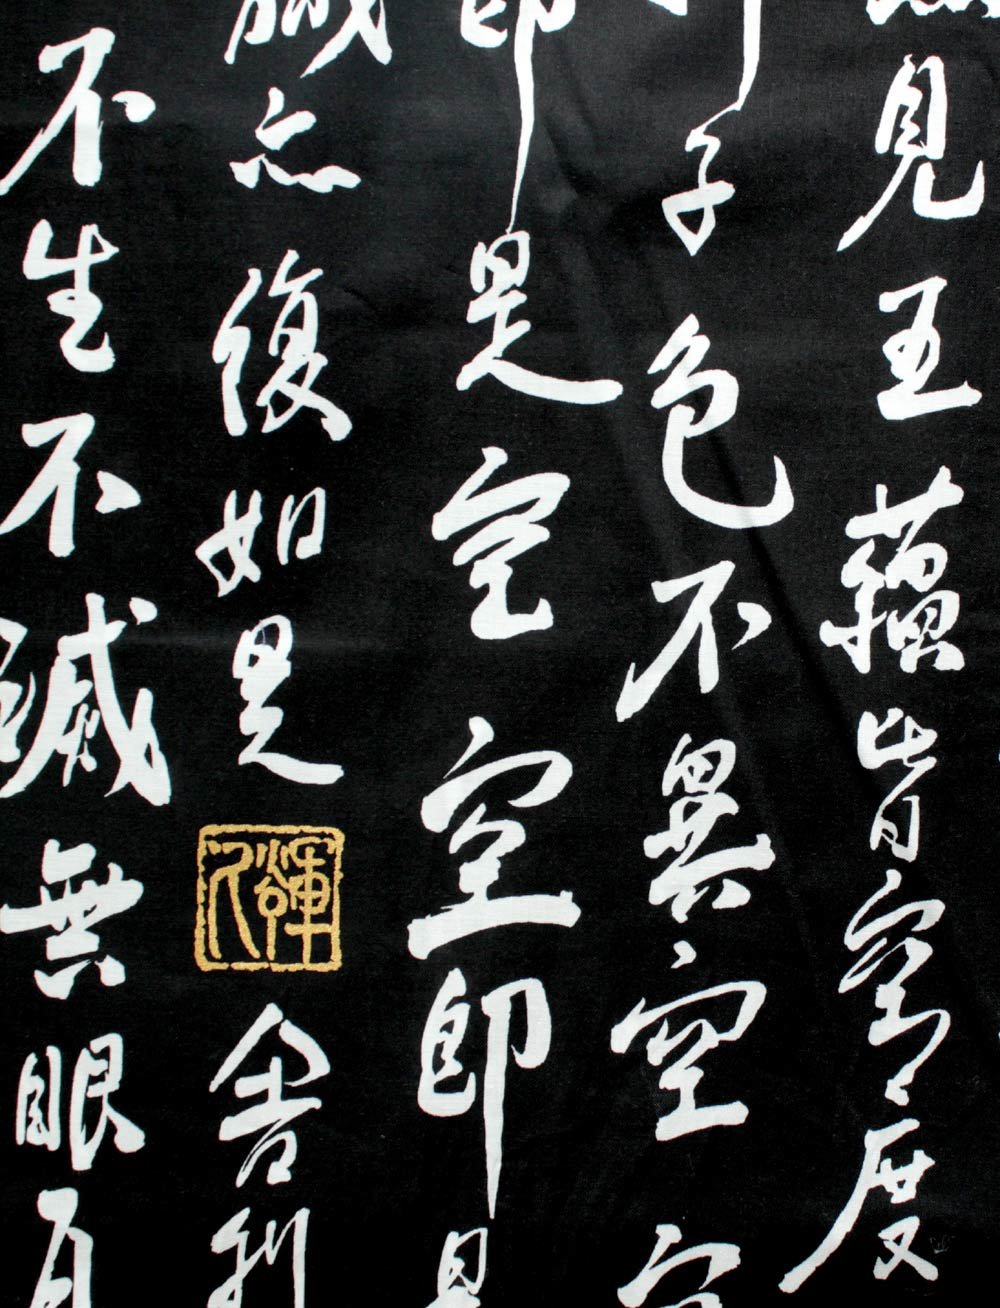 見五蘊皆空度
子色不異空空
即是空空即是
識亦復如是舍利
不生不滅無眼耳